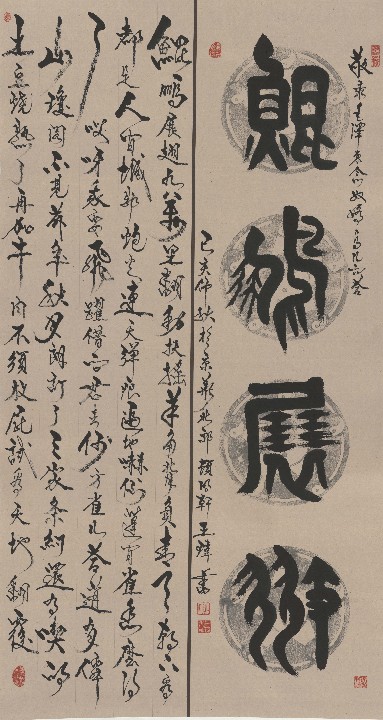 敬录毛泽东念奴娇鸟儿问答
鯤鵬展翅
己亥仲秋於京華
王炜書
鯤鵬展翅九萬里翻動扶摇羊角背負青天朝下看
都是人间城郭炮火連天弹痕遍地嚇倒蓬间雀怎麼得
了哎呀我要飛躍借问君去何方雀儿答道有僊
山瓊阁不見前年秋月朗訂了三家条約還有喫的
土豆燒熟了再加牛肉不須放屁試看天地翻覆